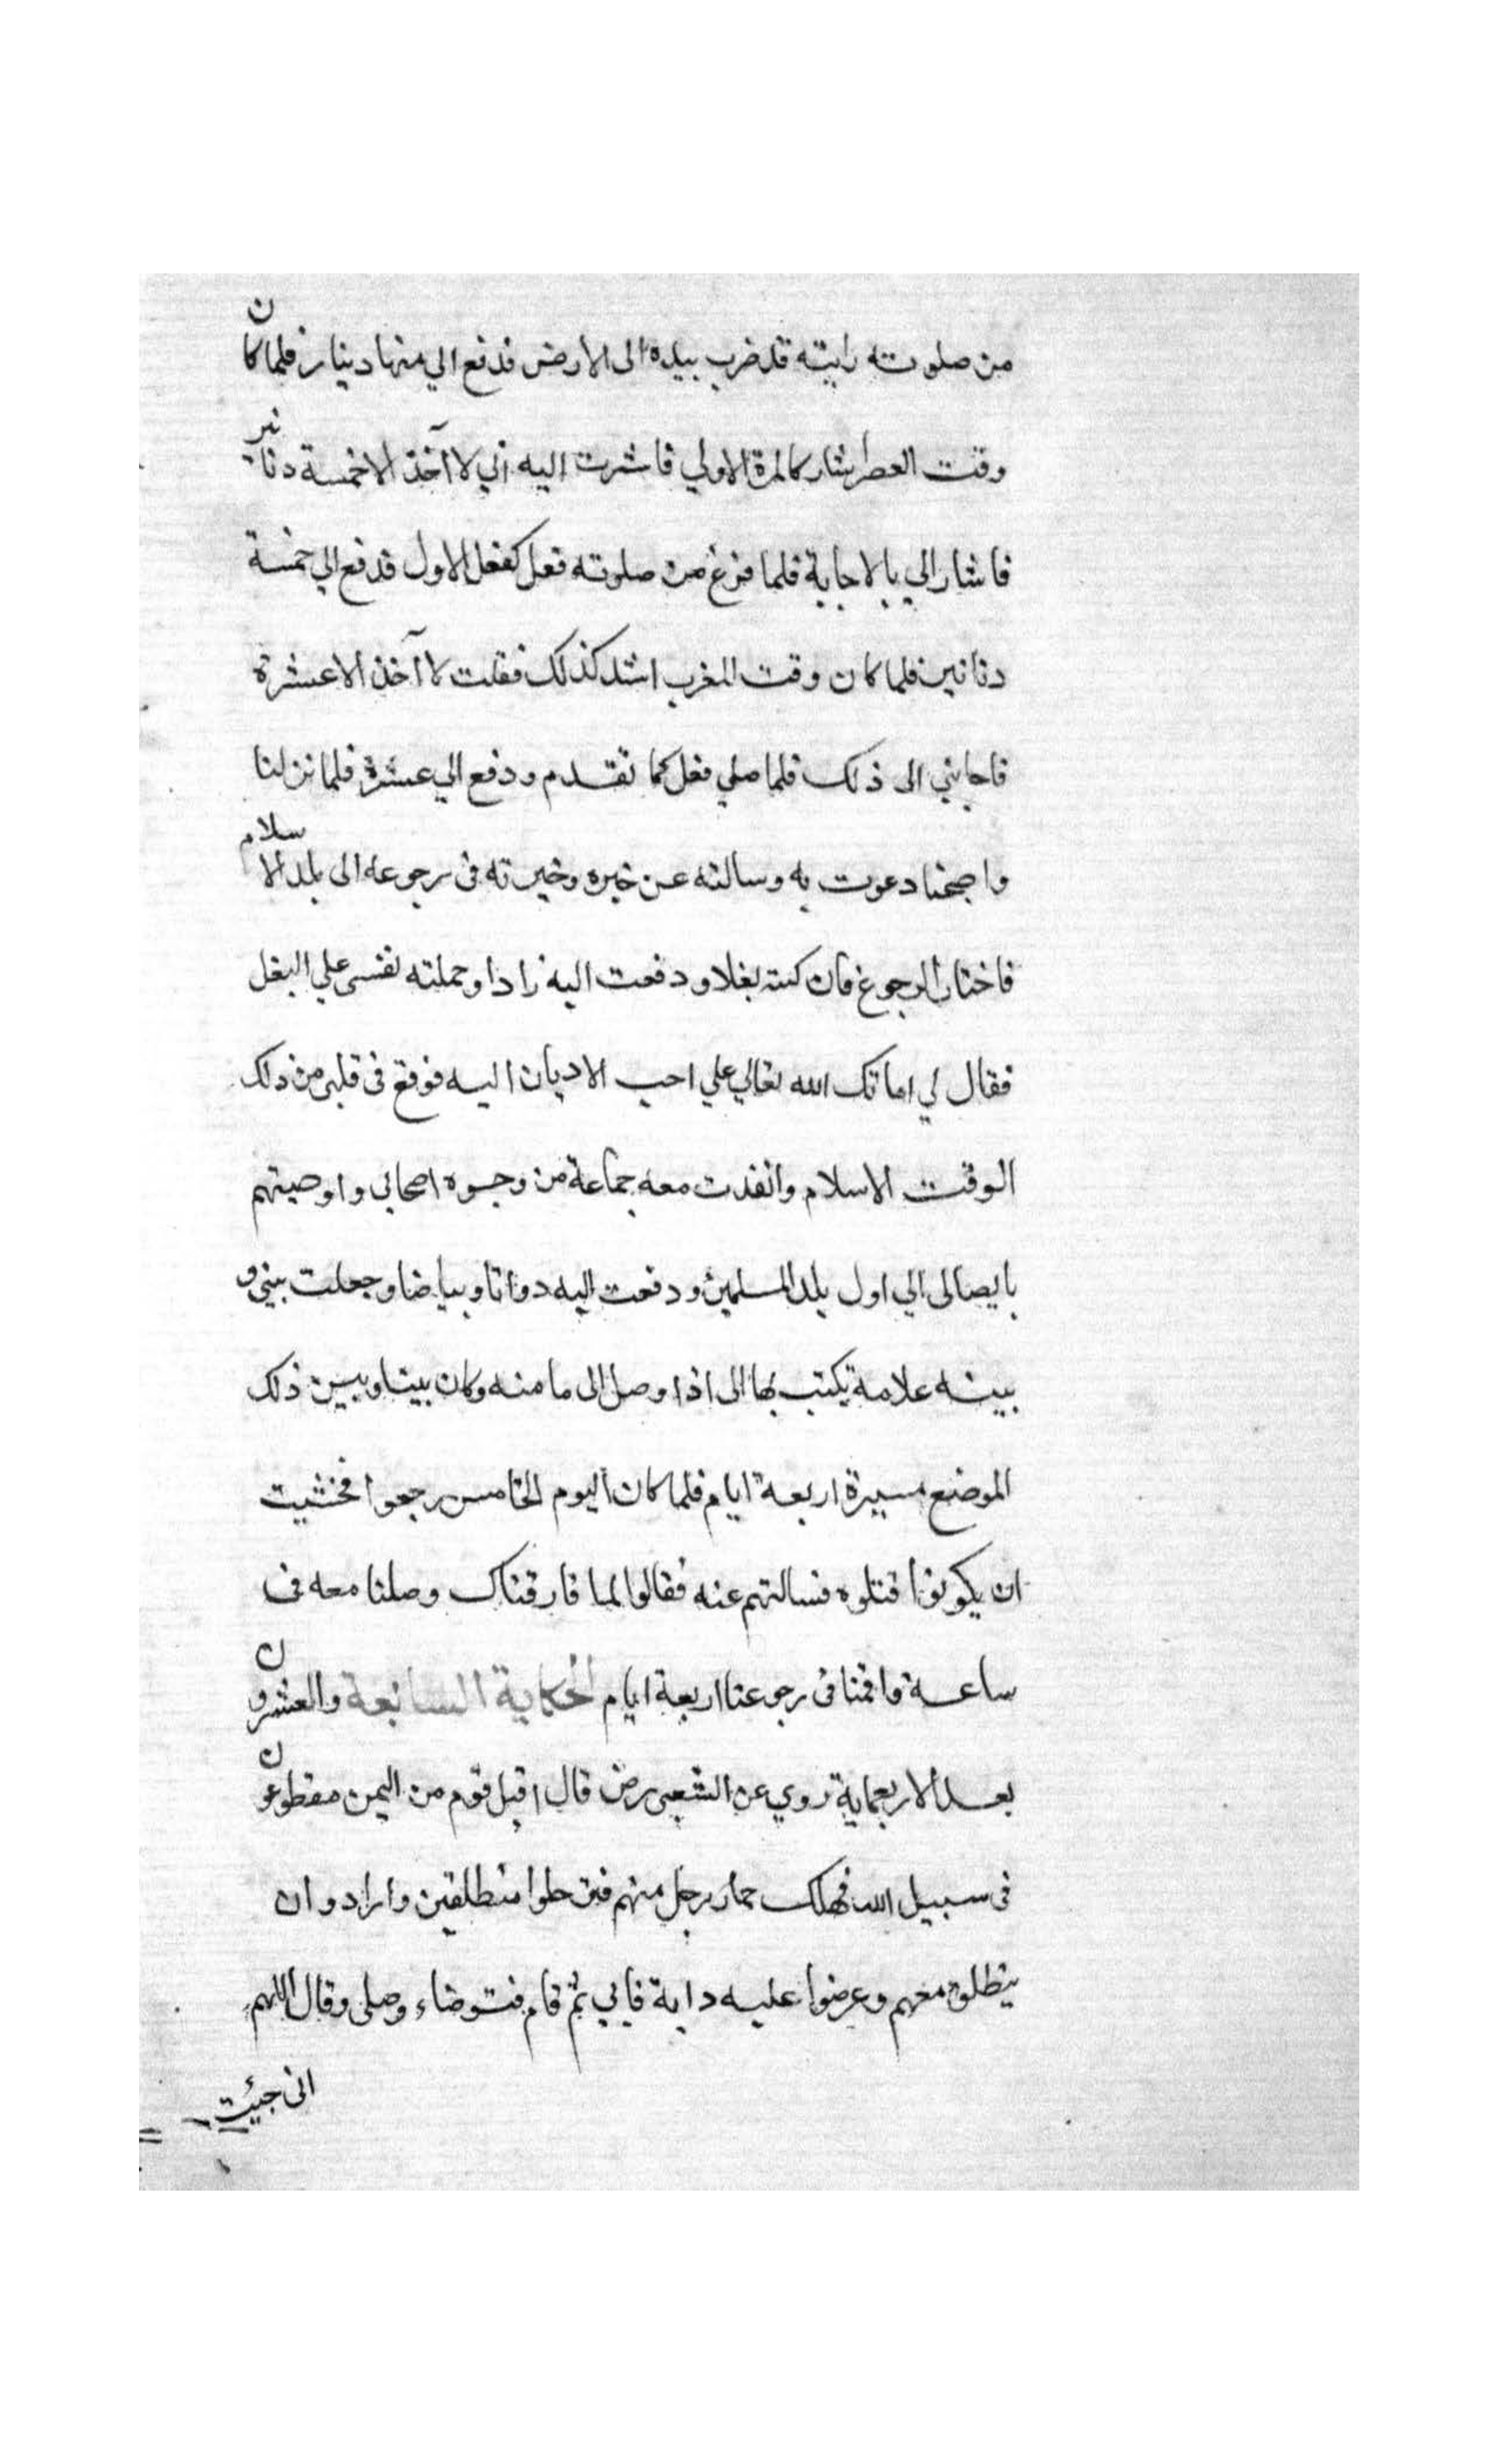 من صلوته رايته قد ضرب بيده الى الارض فدفع الي منها دينارا فلما كان
وقت العصر اشار كالمرة الاولي فاشرت اليه اني لا آخذ الا خمسة دنانير
فاشار الي بالاجابة فلما فرغ من صلوته فعل كفعل الاول فدفع الي خمسة
دنانير فلما كان وقت المغرب اشار كذلك فقلت لا آخذ الا عشرة
فاجابني الى ذلك فلما صلي فعل كما تقدم ودفع الي عشرة فلما نزلنا
واصبحنا دعوت به وسالته عن خبره وخيرته في رجوعه الى بلد الاسلام
فاختار الرجوع بغلا ودفعت اليه زادا وحملته نفسى علي البغل
فقال لي اماتك الله تعالي علي احب الاديان اليه فوقع في قلبى من ذلك
الوقت الاسلام وانفذت معه جماعة من وجوه اصحابي واوصيتهم
بايصالى الي اول بلد المسلمين ودفعت اليه دواتا وبياضا وجعلت بيني و
بينه علامة يكتب بها الى اذا وصل الى مامنه وكان بيننا وبين ذلك
الموضع مسيرة اربعة ايام فلما كان اليوم الخامس رجعوا فخشيت
ان يكونوا قتلوه فسالتهم عنه فقالوا لما فارقناك وصلنا معه في
ساعة واقمنا في رجوعنا اربعة ايام الحكاية السابعة والعشرون
بعد الاربعماية روي عن الشعبى رض قال اقبل قوم من اليمن مقطوعون
فى سبيل الله فهلك حمار رجل منهم فترحلوا منطلقين وارادو ان
ينطلق معهم وعرضوا عليه دابة فابي ثم قام فتوضاء وصلى وقال اللهم
انى جيئت